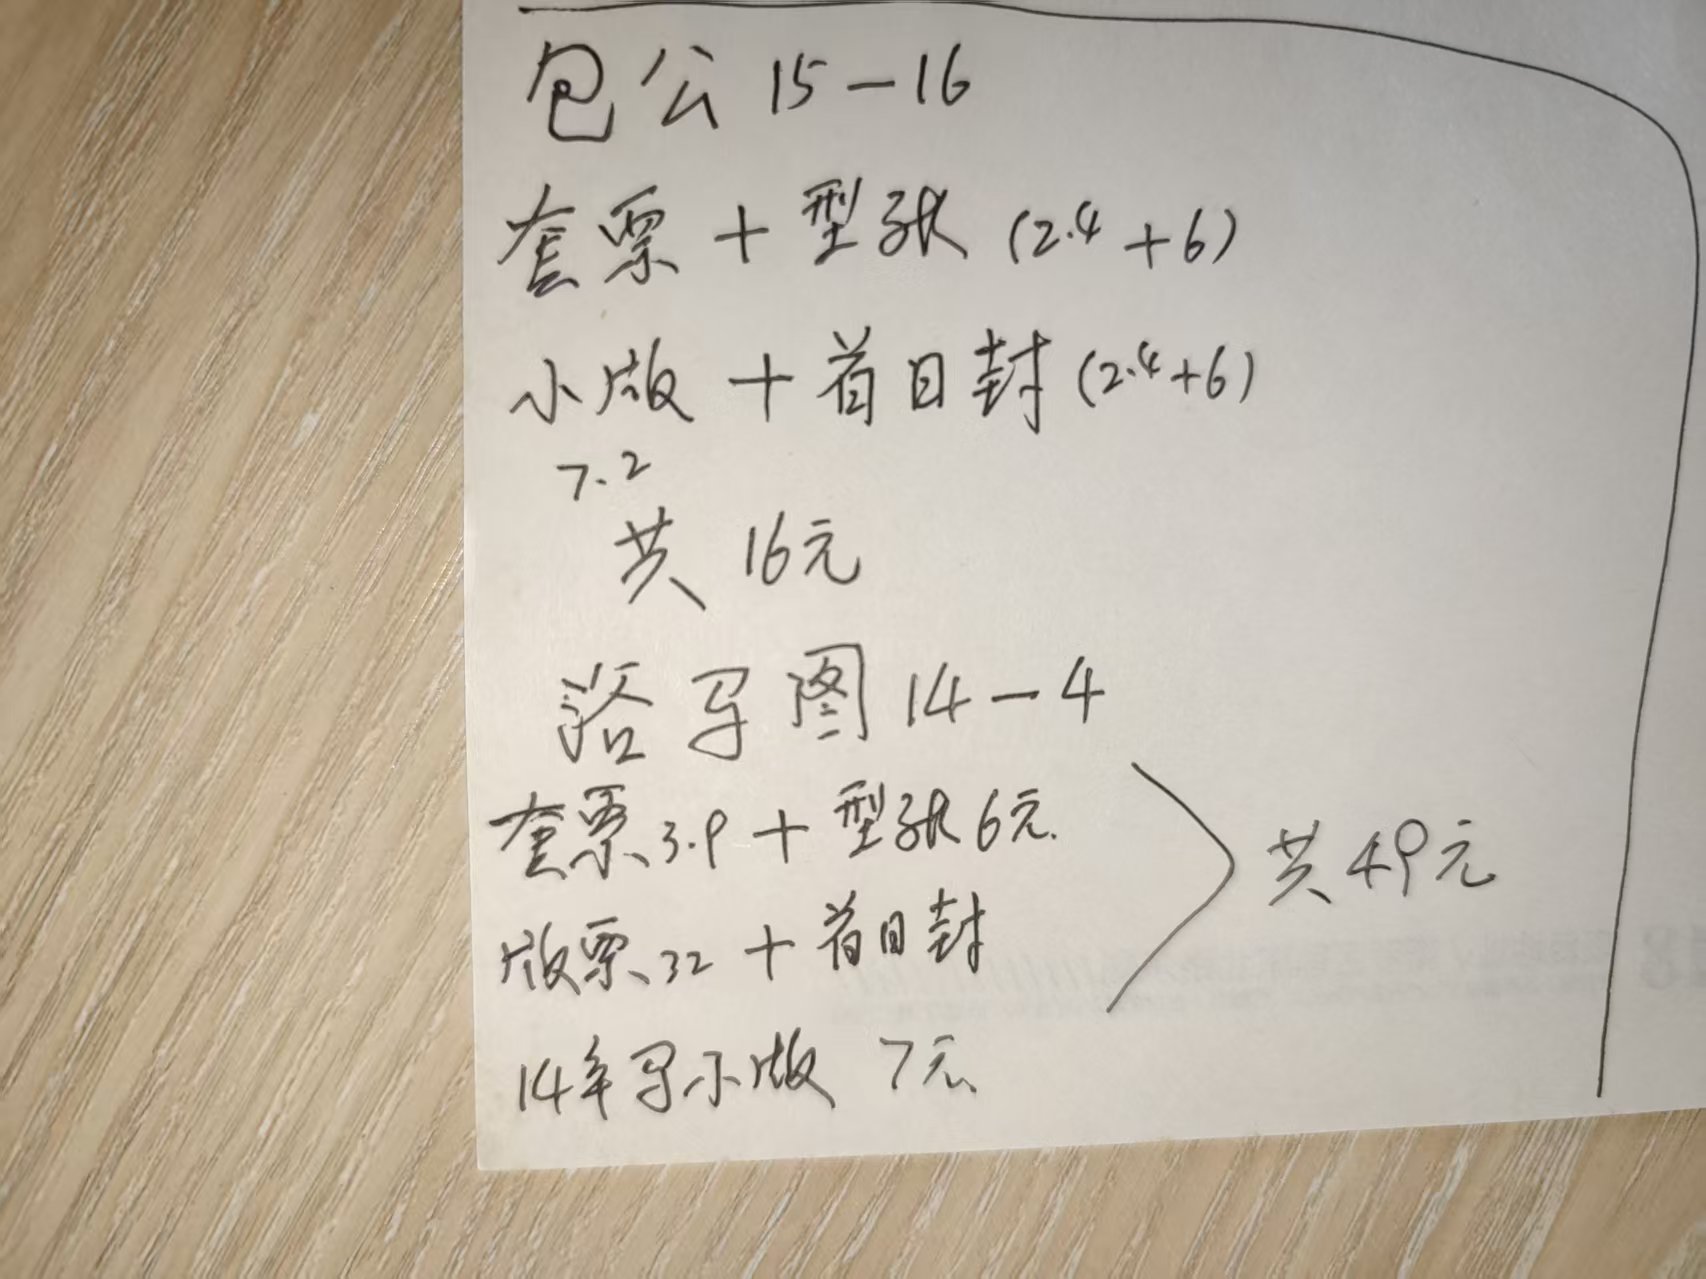 包公 15-16
套票 + 型张 (2.4 + 6)
小版 + 首日封 (2.4+6)
7.2
共 16元
浴马图 14-4
套票 3.9 + 型张 6元.
版票 32 + 首日封
共 49元
14年马小版 7元